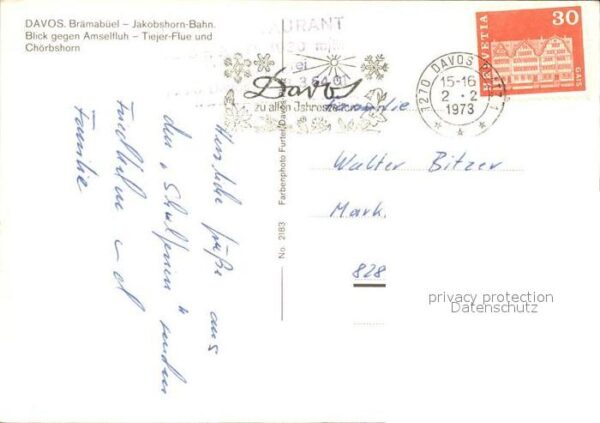 DAVOS. Brämabüel – Jakobshorn-Bahn.
Blick gegen Amselfluh – Tiejer-Flue und
Chörbshorn
RESTAURANT
Davos
zu allen Jahreszeiten
7270 DAVOS PLATZ 1
15-16
2.-2.
1973
30
HELVETIA
GAIS
Herzliche Grüße aus
den "Skiferien" senden
Friedhelm und
Familie
No. 2183 Farbenphoto Furter, Davos
Familie
Walter Bitzer
Mark
828
privacy protection
Datenschutz